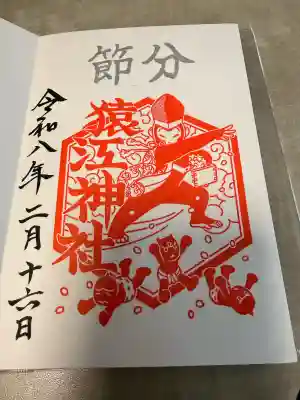 節分
猿江神社
令和八年二月十六日